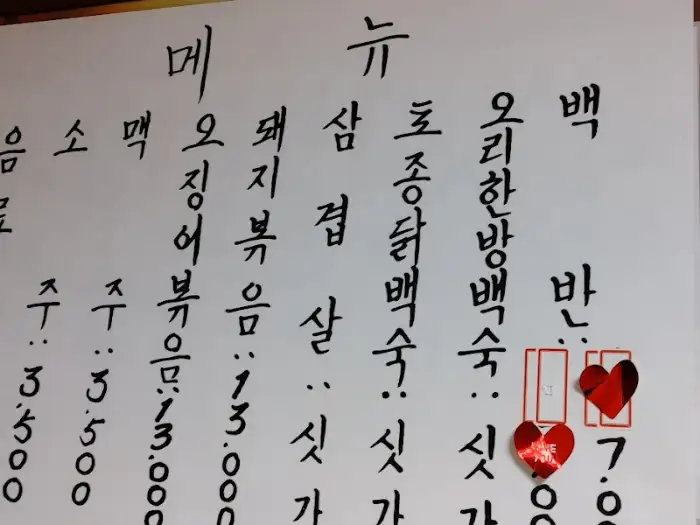 메뉴
백반: 7.0
오리한방백숙: 싯가
토종닭백숙: 싯가
삼겹살: 싯가
돼지볶음: 13.000
오징어볶음: 13.000
맥주: 3.500
소주: 3.500
음료